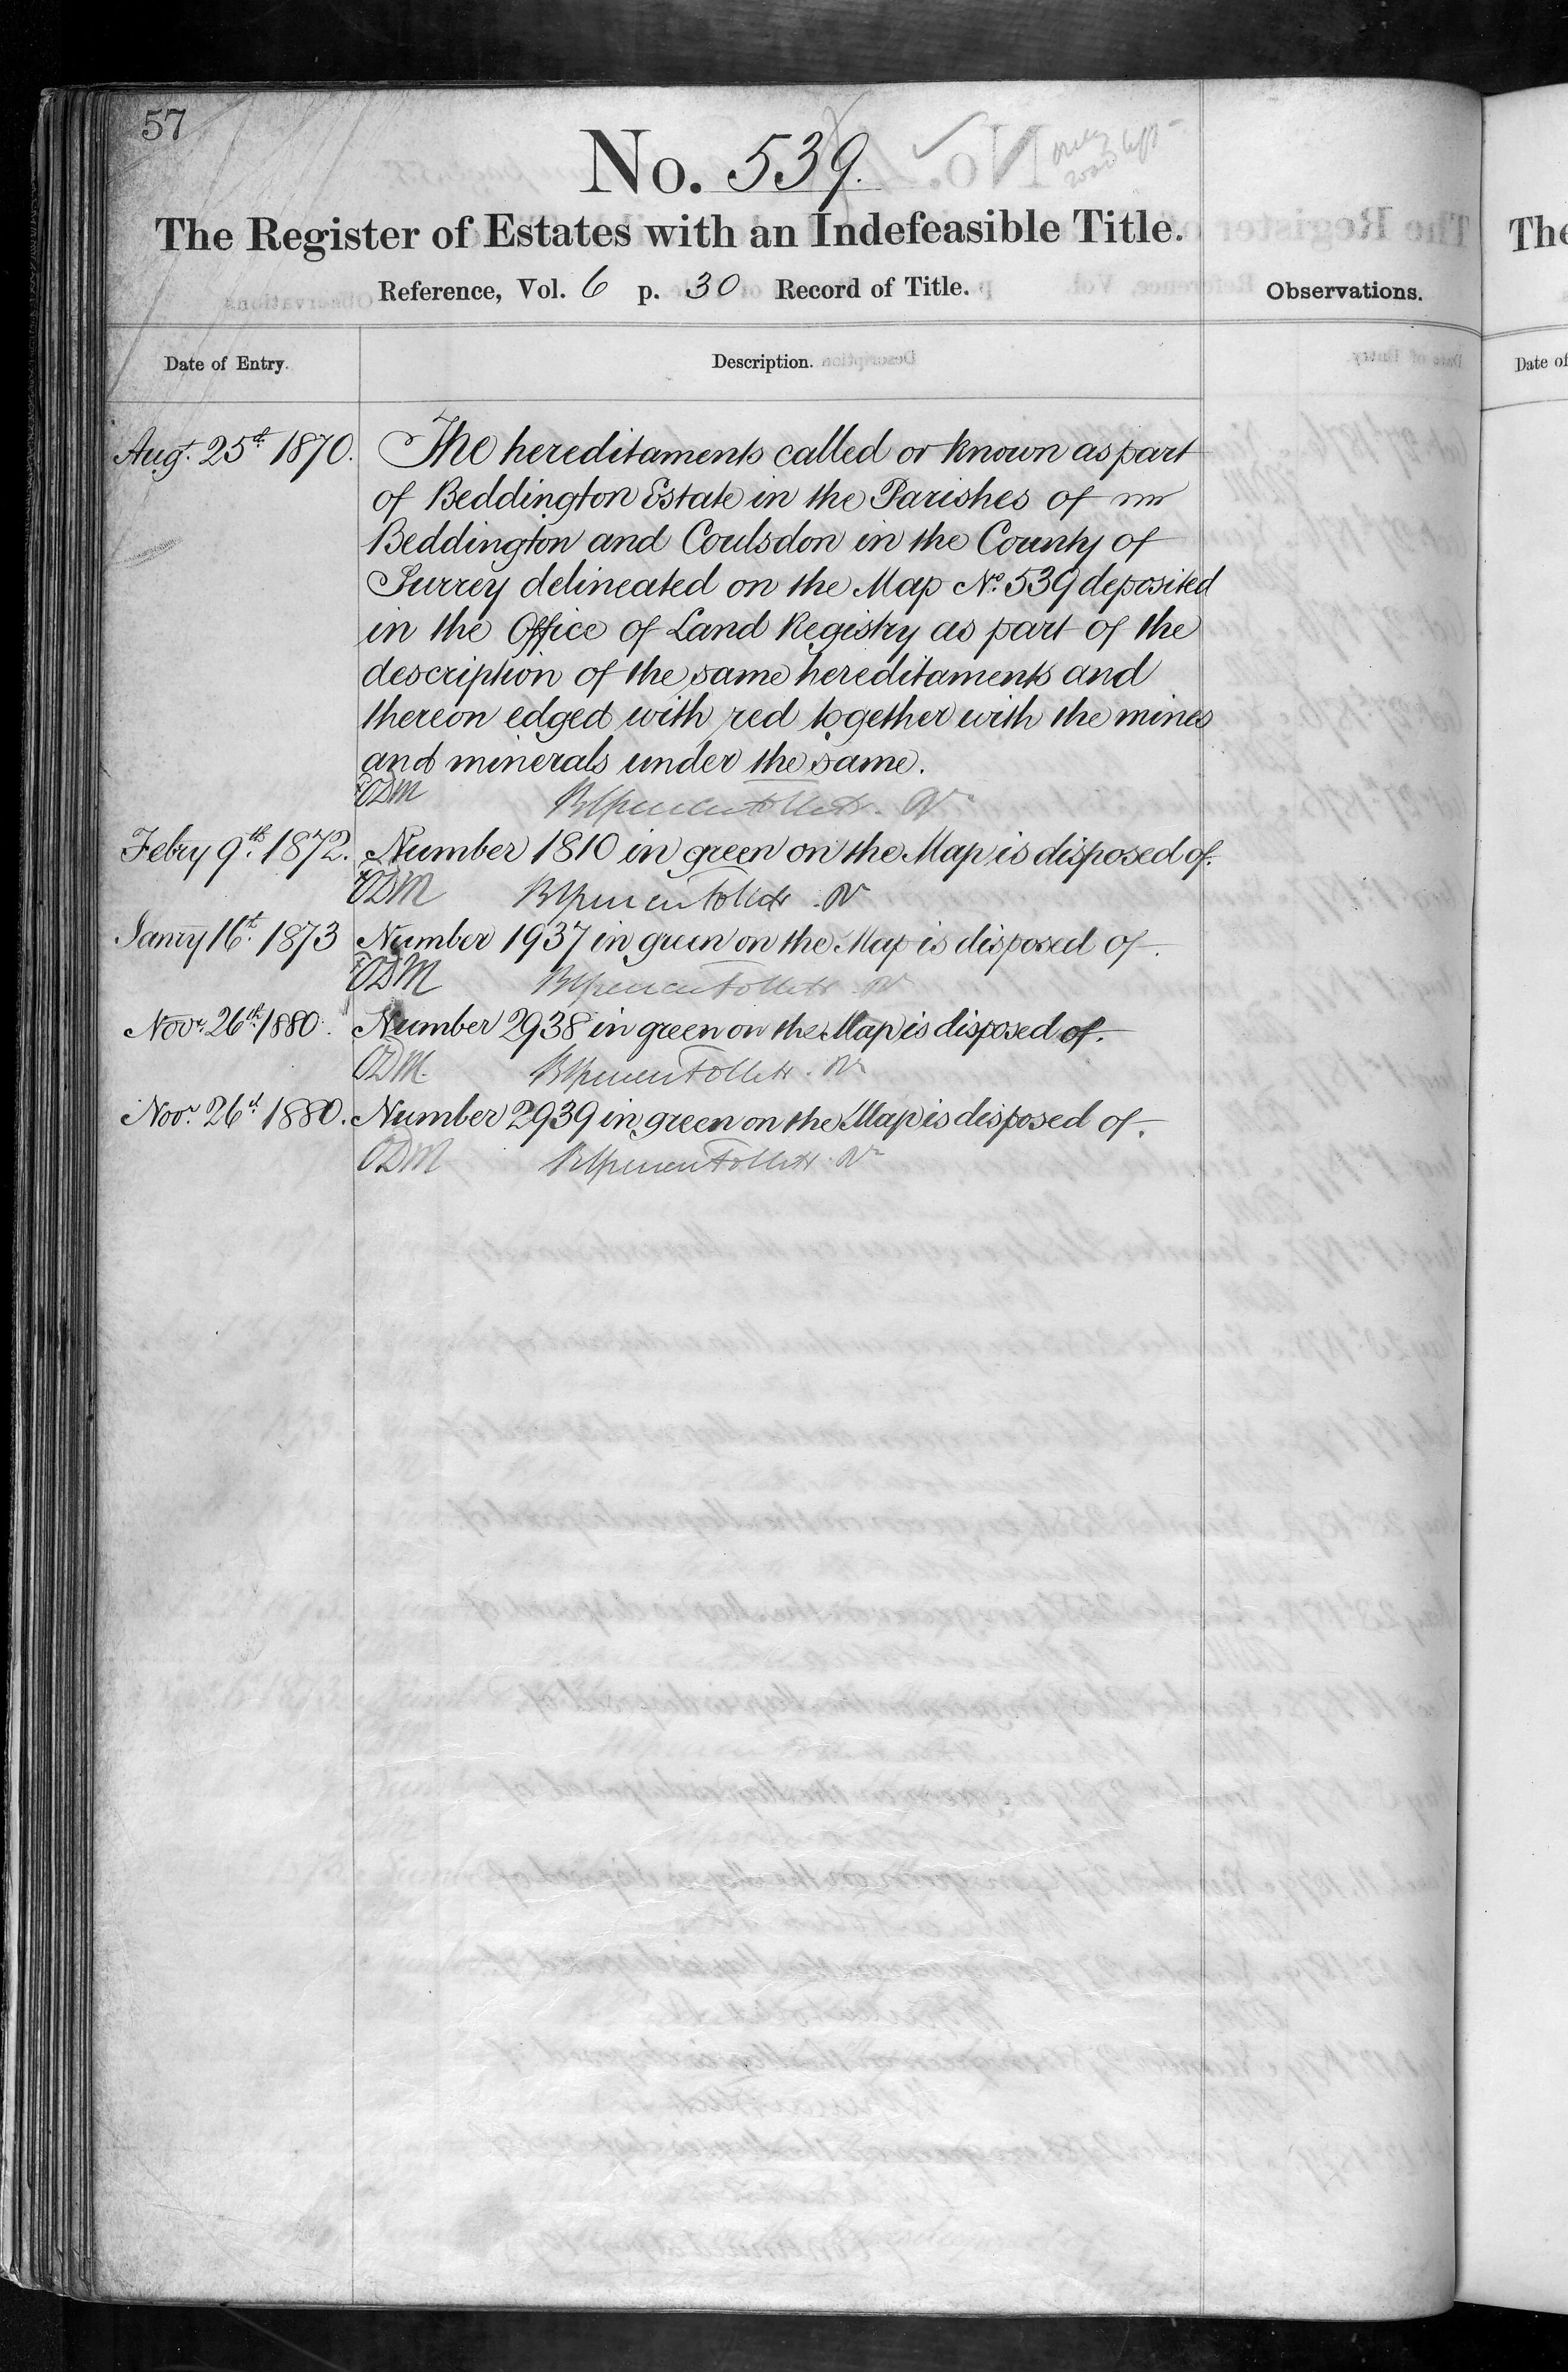 57
No. 539.
only road left
The Register of Estates with an Indefeasible Title.
Reference, Vol. 6 p. 30 Record of Title.
Observations.
Date of Entry.
Description.
Augt. 25th 1870. The hereditaments called or known as part
of Beddington Estate in the Parishes of
Beddington and Coulsdon in the County of
Surrey delineated on the Map No. 539 deposited
in the Office of Land Registry as part of the
description of the same hereditaments and
thereon edged with red together with the mines
and minerals under the same.
ODM
Febry 9th. 1872. Number 1810 in green on the Map is disposed of.
ODM
Janry 16th. 1873 Number 1937 in green on the Map is disposed of.
ODM
Novr. 26th. 1880. Number 2938 in green on the Map is disposed of.
ODM.
Novr. 26th. 1880. Number 2939 in green on the Map is disposed of.
ODM
The
Date of